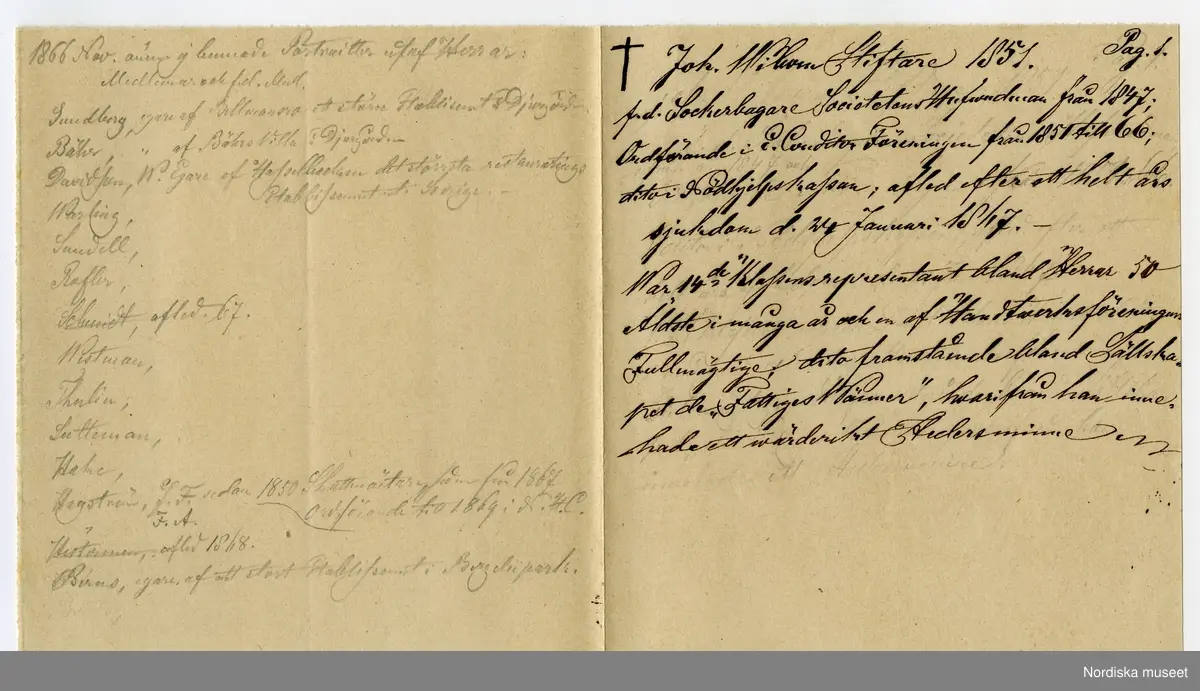 1866 Nov. ej lemnade Portraitter utaf Herrar:
Medlemmar och f.d. Medl.
Sundberg, egare af ett större Etablisemt å Djurgård.
Bähr, " af Bährs Villa i Djurgården
Davidson, W. Egare af Hasselbacken det största restaurations
Etablissemnt i Sverige. —
Warling,
Sundell,
Rofler,
Schmidt, afled. 67.
Westman,
Thulin,
Sutteman,
Hake,
Hegström, C. F. sedan 1850 Skattmästare från 1867
F. A. Ordförande tio 1869 i N. H. C.
afled 1868.
Berns, egare af ett stort Etablissemt i Berzelii park.
Pag. 1.
† Joh. Wilhom Stiftare 1851.
f.d. Sockerbagare Societetens Hufvudman från 1847;
Ordförande i C. Conditor Föreningen från 1851 till 66;
dito i Nödhjelpskassan; afled efter ett helt års
sjukdom d. 24 Januari 1867. —
War 14de Klassens representant bland Herrar 50
Äldste i många år och en af Handtwerksföreningens
Fullmägtige; dito framstående bland Sällska-
pet de „Fattiges Wänner", hwarifrån han inne-
hade ett wärderikt Hedersminne
Nordiska museet